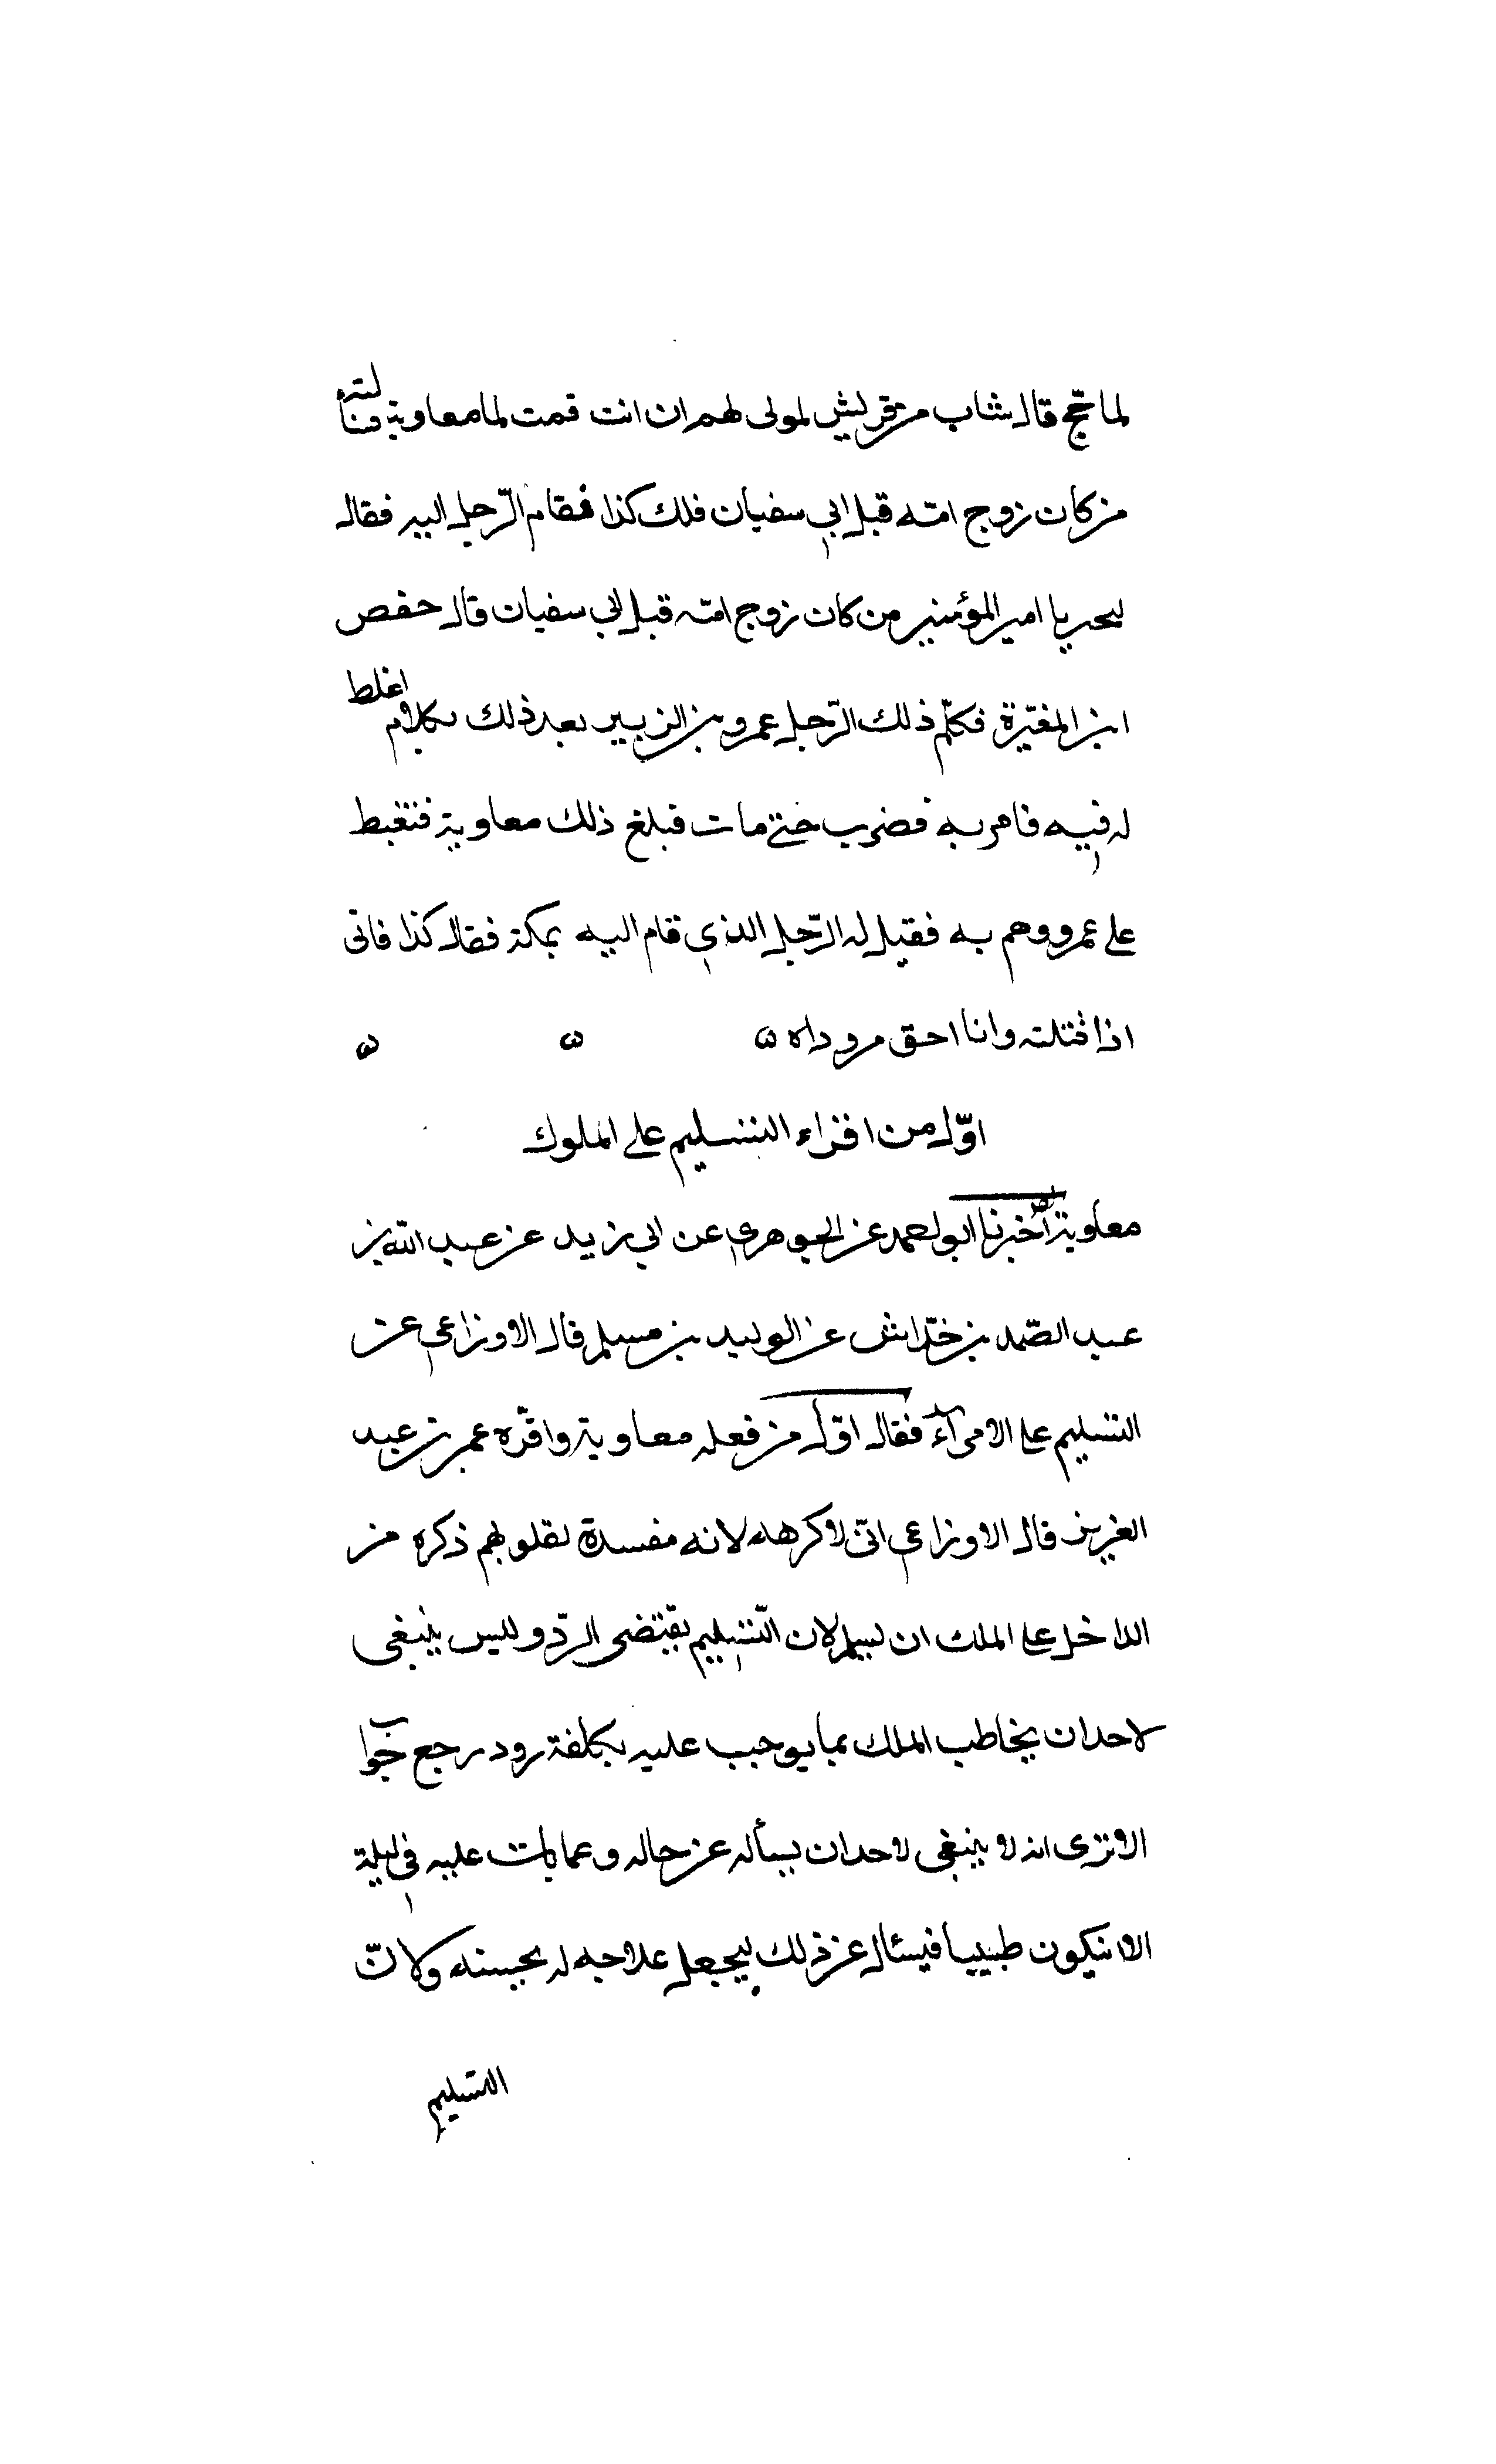 لما حج قال شاب من قريش لمولى لهم ان انت قمت لما معاوية فسألته
من كان زوج امّه قبل ابي سفيان فلك كذا فقام الرّجل اليه فقال
يا امير المؤمنين من كان زوج امّه قبل ابي سفيان قال حفص
ابن المغيرة فكلّم ذلك الرّجل عمرو بن الزبير بعد ذلك بكلام اغلظ
له فيه فامر به فضرب حتى مات فبلغ ذلك معاوية فتغيظ
على عمرو وهم به فقيل له الرّجل الذي قام اليه بمكة فقال كذا فانى
اذا قتلته وانا احق من وداه
اوّل من اقراء التسليم على الملوك
معاوية اخبرنا ابو احمد عن الجوهري عن ابي زيد عن عبد الله بن
عبد الصّمد بن خدّاش عن الوليد بن مسلم قال الاوزاعي عن
التسليم على الامرآء فقال اوّل من فعله معاوية واقرّه عمر بن عبد
العزيز قال الاوزاعي انى لاكرهه لانه مفسدة لقلوبهم ذكره من
الداخل على الملك ان يسلم لان التّسليم يقتضى الردّ وليس ينبغى
لاحد ان يخاطب الملك بما يوجب عليه بكلفة رجع جوابا
الا ترى انه لا ينبغى لاحد ان يسأله عن حاله وعما بات عليه في ليلة
الا ان يكون طبيبا فيسئال عن ذلك ليجعل علاجه له بحسبه وكانّ
التسليم